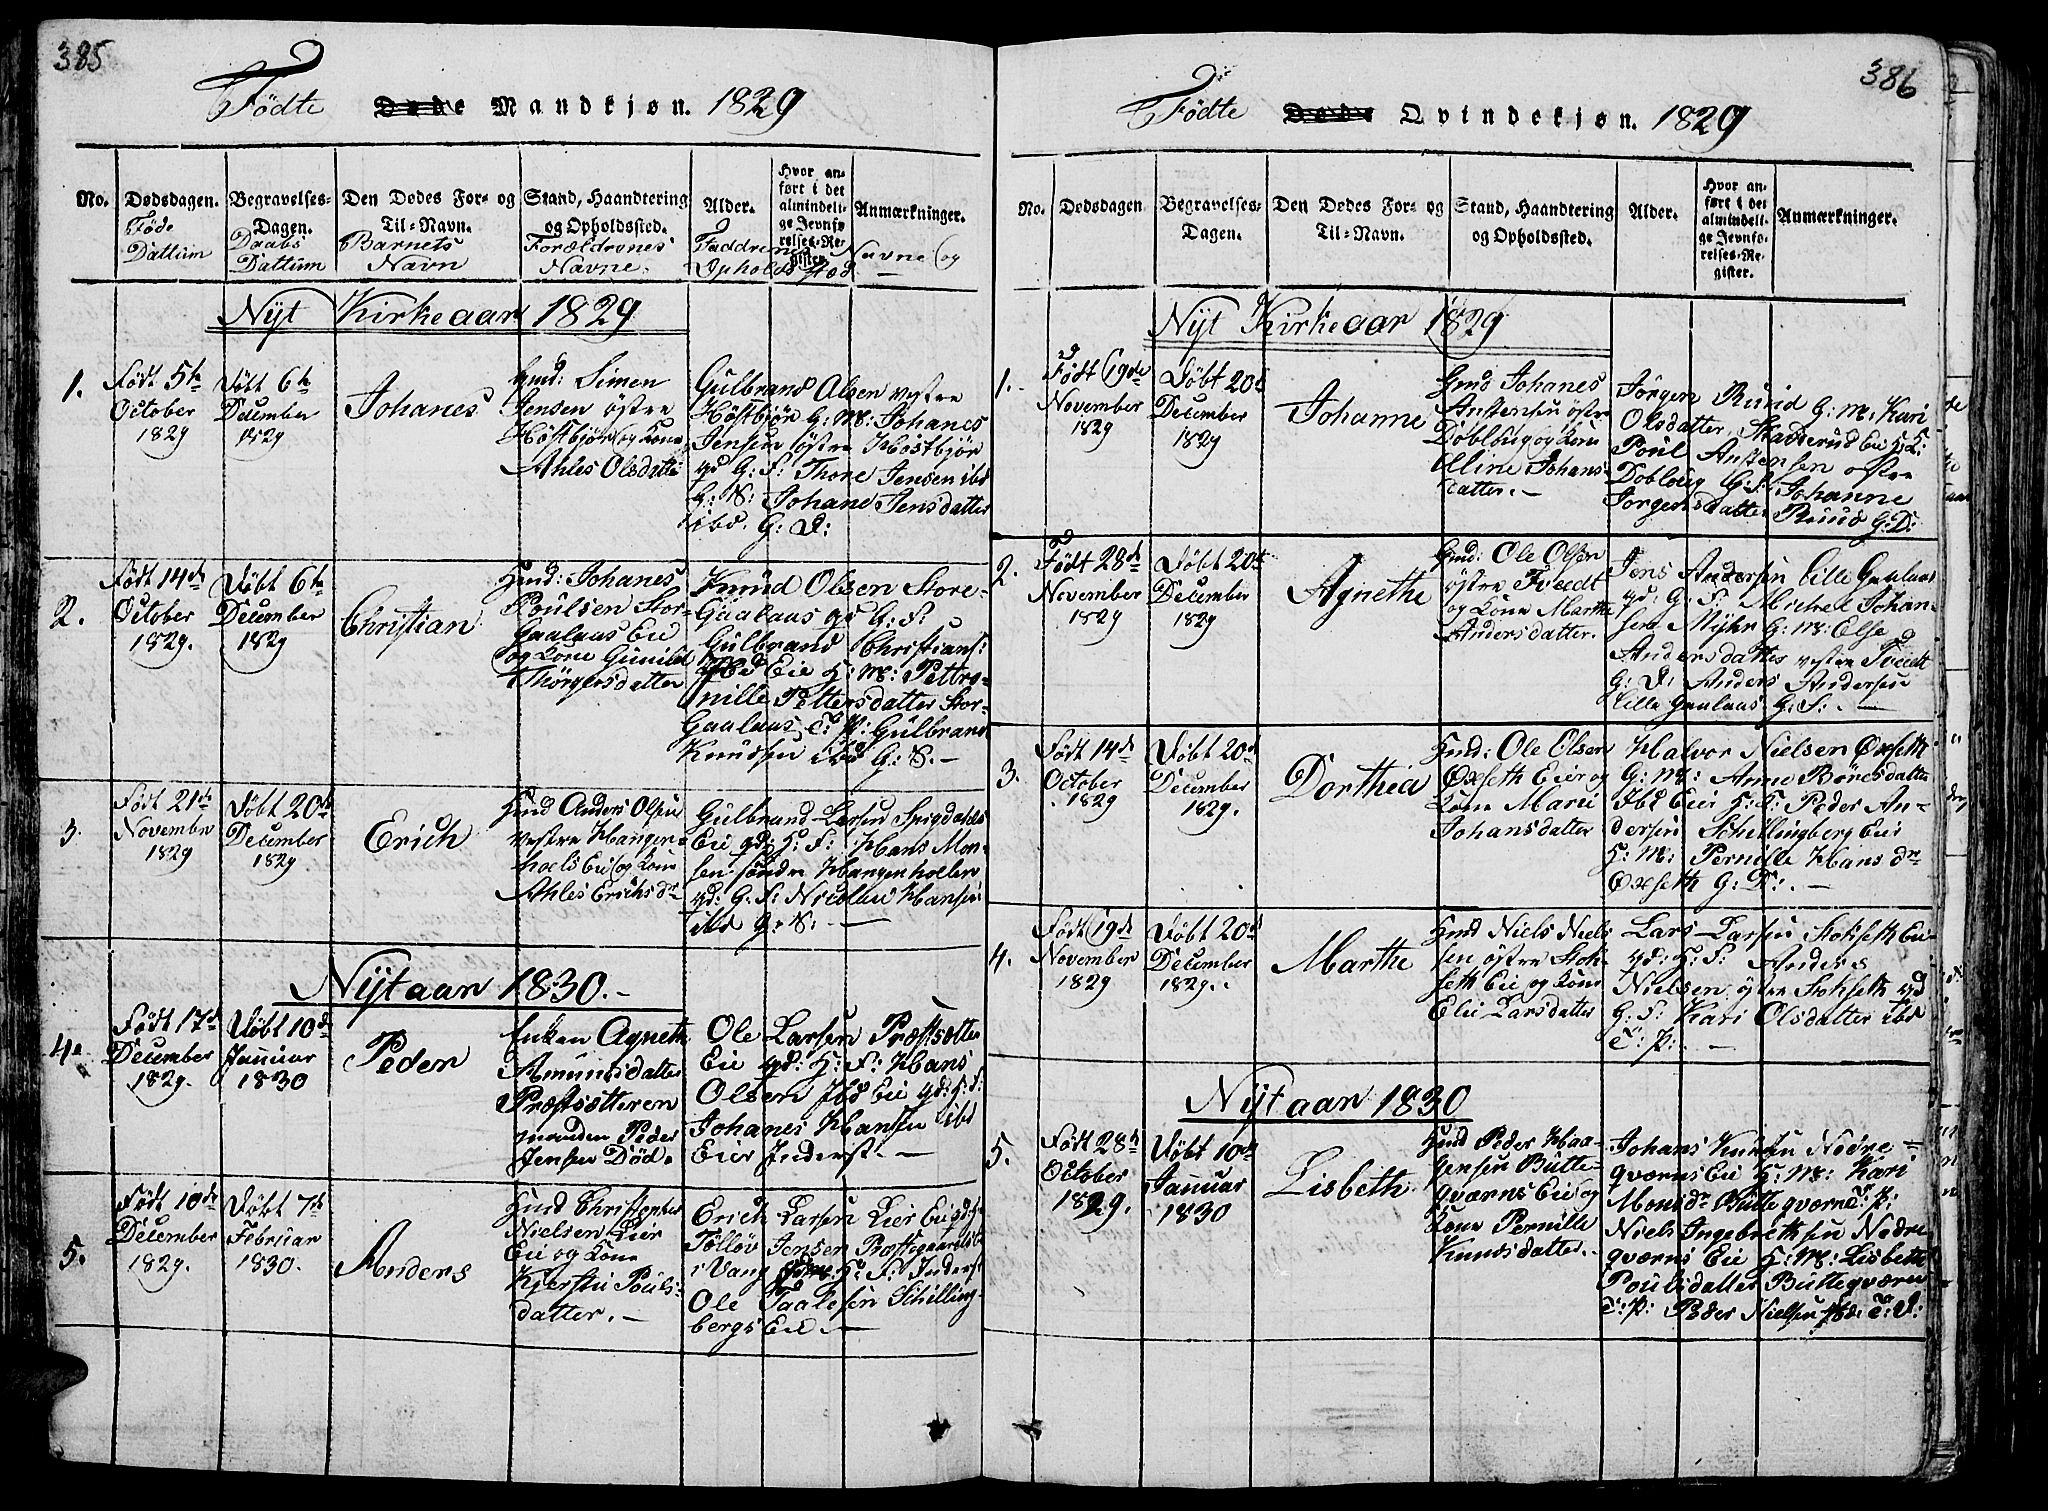 385
Fødte Døde Mandkjøn. 1829
No.
Dødsdagen.
Føde
Dattum
Begravelses-
Dagen.
Daabs
Dattum
Den Dødes For- og
Til-Navn.
Barnets
Navn
Stand, Haandtering
og Opholdssted.
Forældrenes
Navne.
Alder.
Faddrenes Navne og
Opholds Stæd
Hvor an-
ført i det
almindeli-
ge Jevnfø-
relses-Re-
gister.
Anmærkninger.
Nyt Kirkeaar 1829
1.
Født 5te
October
1829
Døbt 6te
December
1829
Johanes
Gmd: Simen
Jensen østre
Høstbjør og Kone
Ahles Olsdatte
Gulbrand Olsen vestre
Høstbjør G: M: Johanes
Jensen østre Høstbjør
gd G: F: Thore Jensen ibd
G: K: Johane Jensdatter
ibd. G: D:
2.
Født 14de
October
1829.
Døbt 6te
December
1829
Christian
Hmd: Johanes
Poulsen Stor-
Gaalaas Eie
og Kone Gunild
Thørgersdatter
Knud Olsen Store-
Gaalaas gd G: F:
Gulbrand Christians:
Ibd Eie H: M: Pettro-
nille Pettersdatter Stor-
Gaalaas T: P: Gulbrand
Knudsen ibd G: K. -
3.
Født 21de
November
1829
Døbt 20de
December
1829
Erich
Hmd Anders Olsen
vestre Hangen-
hoels Eie og Kone
Ahles Erichsdr
Gulbrand Larsen Spigdahls
Eie gd: H: F: Hans Mon-
sen søndre Hangenholen
gd: G. F: Nicolai Hansen
ibd G: K: -
Nytaar 1830. -
4.
Født 17de
December
1829.
Døbt 10de
Januar
1830
Peder
Enken Agneth
Amundsdatter
Præstsætteren
manden Peder
Jensen Død.
Ole Larsen Præstsætter
Eie gd: H: F: Hans
Olsen Ibd Eie gd: H: F:
Johanes Hansen ibd
Eier Inderst. -
5.
Født 10de
December
1829.
Døbt 7de
Februar
1830.
Anders
Hmd Christopher
Nielsen Lier
Eie og Kone
Kjersti Pouls-
datter. -
Erich Larsen Lier Eie gd: H:
Tolløv Jensen Præstegaards
i Vang H: F: Inders
Ole Taalesen Schilling-
bergs Eie. -
386
Fødte Døde Qvindekjøn. 1829
No.
Dødsdagen
Begravelses-
Dagen.
Den Dødes For- og
Til-Navn.
Stand, Haandtering
og Opholdssted.
Alder.
Hvor an-
ført i det
almindeli-
ge Jevnfø-
relses-Re-
gister.
Anmærkninger.
Nyt Kirkeaar 1829
1.
Født 19de
November
1829
Døbt 20de
December
1829
Johanne
Gmd Johanes
Anstensen østre
Dobloug og Kone
Eline Johans-
datter. -
Jørgen Ruud G: M: Kari
Olsdatter, Skadderud Eie H: K:
Poul Anstensen østre
Dobloug G: F: Johanne
Jorgensdatter Ruud G: D:
2.
Født 28de
November
1829
Døbt 20de
December
1829
Agnethe
Gmd: Ole Olsen
østre Tveedt
og Kone Marthe
Andersdatter.
Jens Andersen Lille Gaalaas
gd: G: F. Michel Johan-
sen Myhr G: M: Else
Andersdatter vestre Tveedt
G: D: Anders Andersen
Lille Gaalaas G: F: -
3.
Født 14de
October
1829
Døbt 20de
December
1829.
Dorthia
Hmd: Ole Olsen
Oxseth Eier og
Kone Marie
Johansdatter
Halvor Nielsen Oxseth
G: M: Anne Boresdatter
Ibd Eie H: K: Peder An-
dersen Schillingberg Eie
H: M: Pernille Hans dr
Oxseth G: D: . -
4.
Født 19de
November
1829
Døbt 20de
December
1829. .
Marthe
Hmd Niels Niels
sen østre Stok-
seth Eie og Kone
Elie Larsdatter
Lars Larsen Stokseth Eie
gd: H: F: Anders
Nielsen østre Stokseth gd
G: F: Kari Olsdatter ibd
T: P: . -
Nytaar 1830
5.
Født 28de
October
1829.
Døbt 10de
Januar
1830
Lisbeth
Hmd Peder Haa-
gensen Butte-
qværns Eie og
Kone Pernille
Knudsdatter. -
Johans Knudsen Nedre -
qværns Eie H: M: Kari
Monsdr Butteqværn T: P:
Niels Ingebrethsen Nedre
qværns Eie H: M: Lisbeth
Poulsdatter Butteqværn
T: P: Peder Nielsen ibd: T: D: